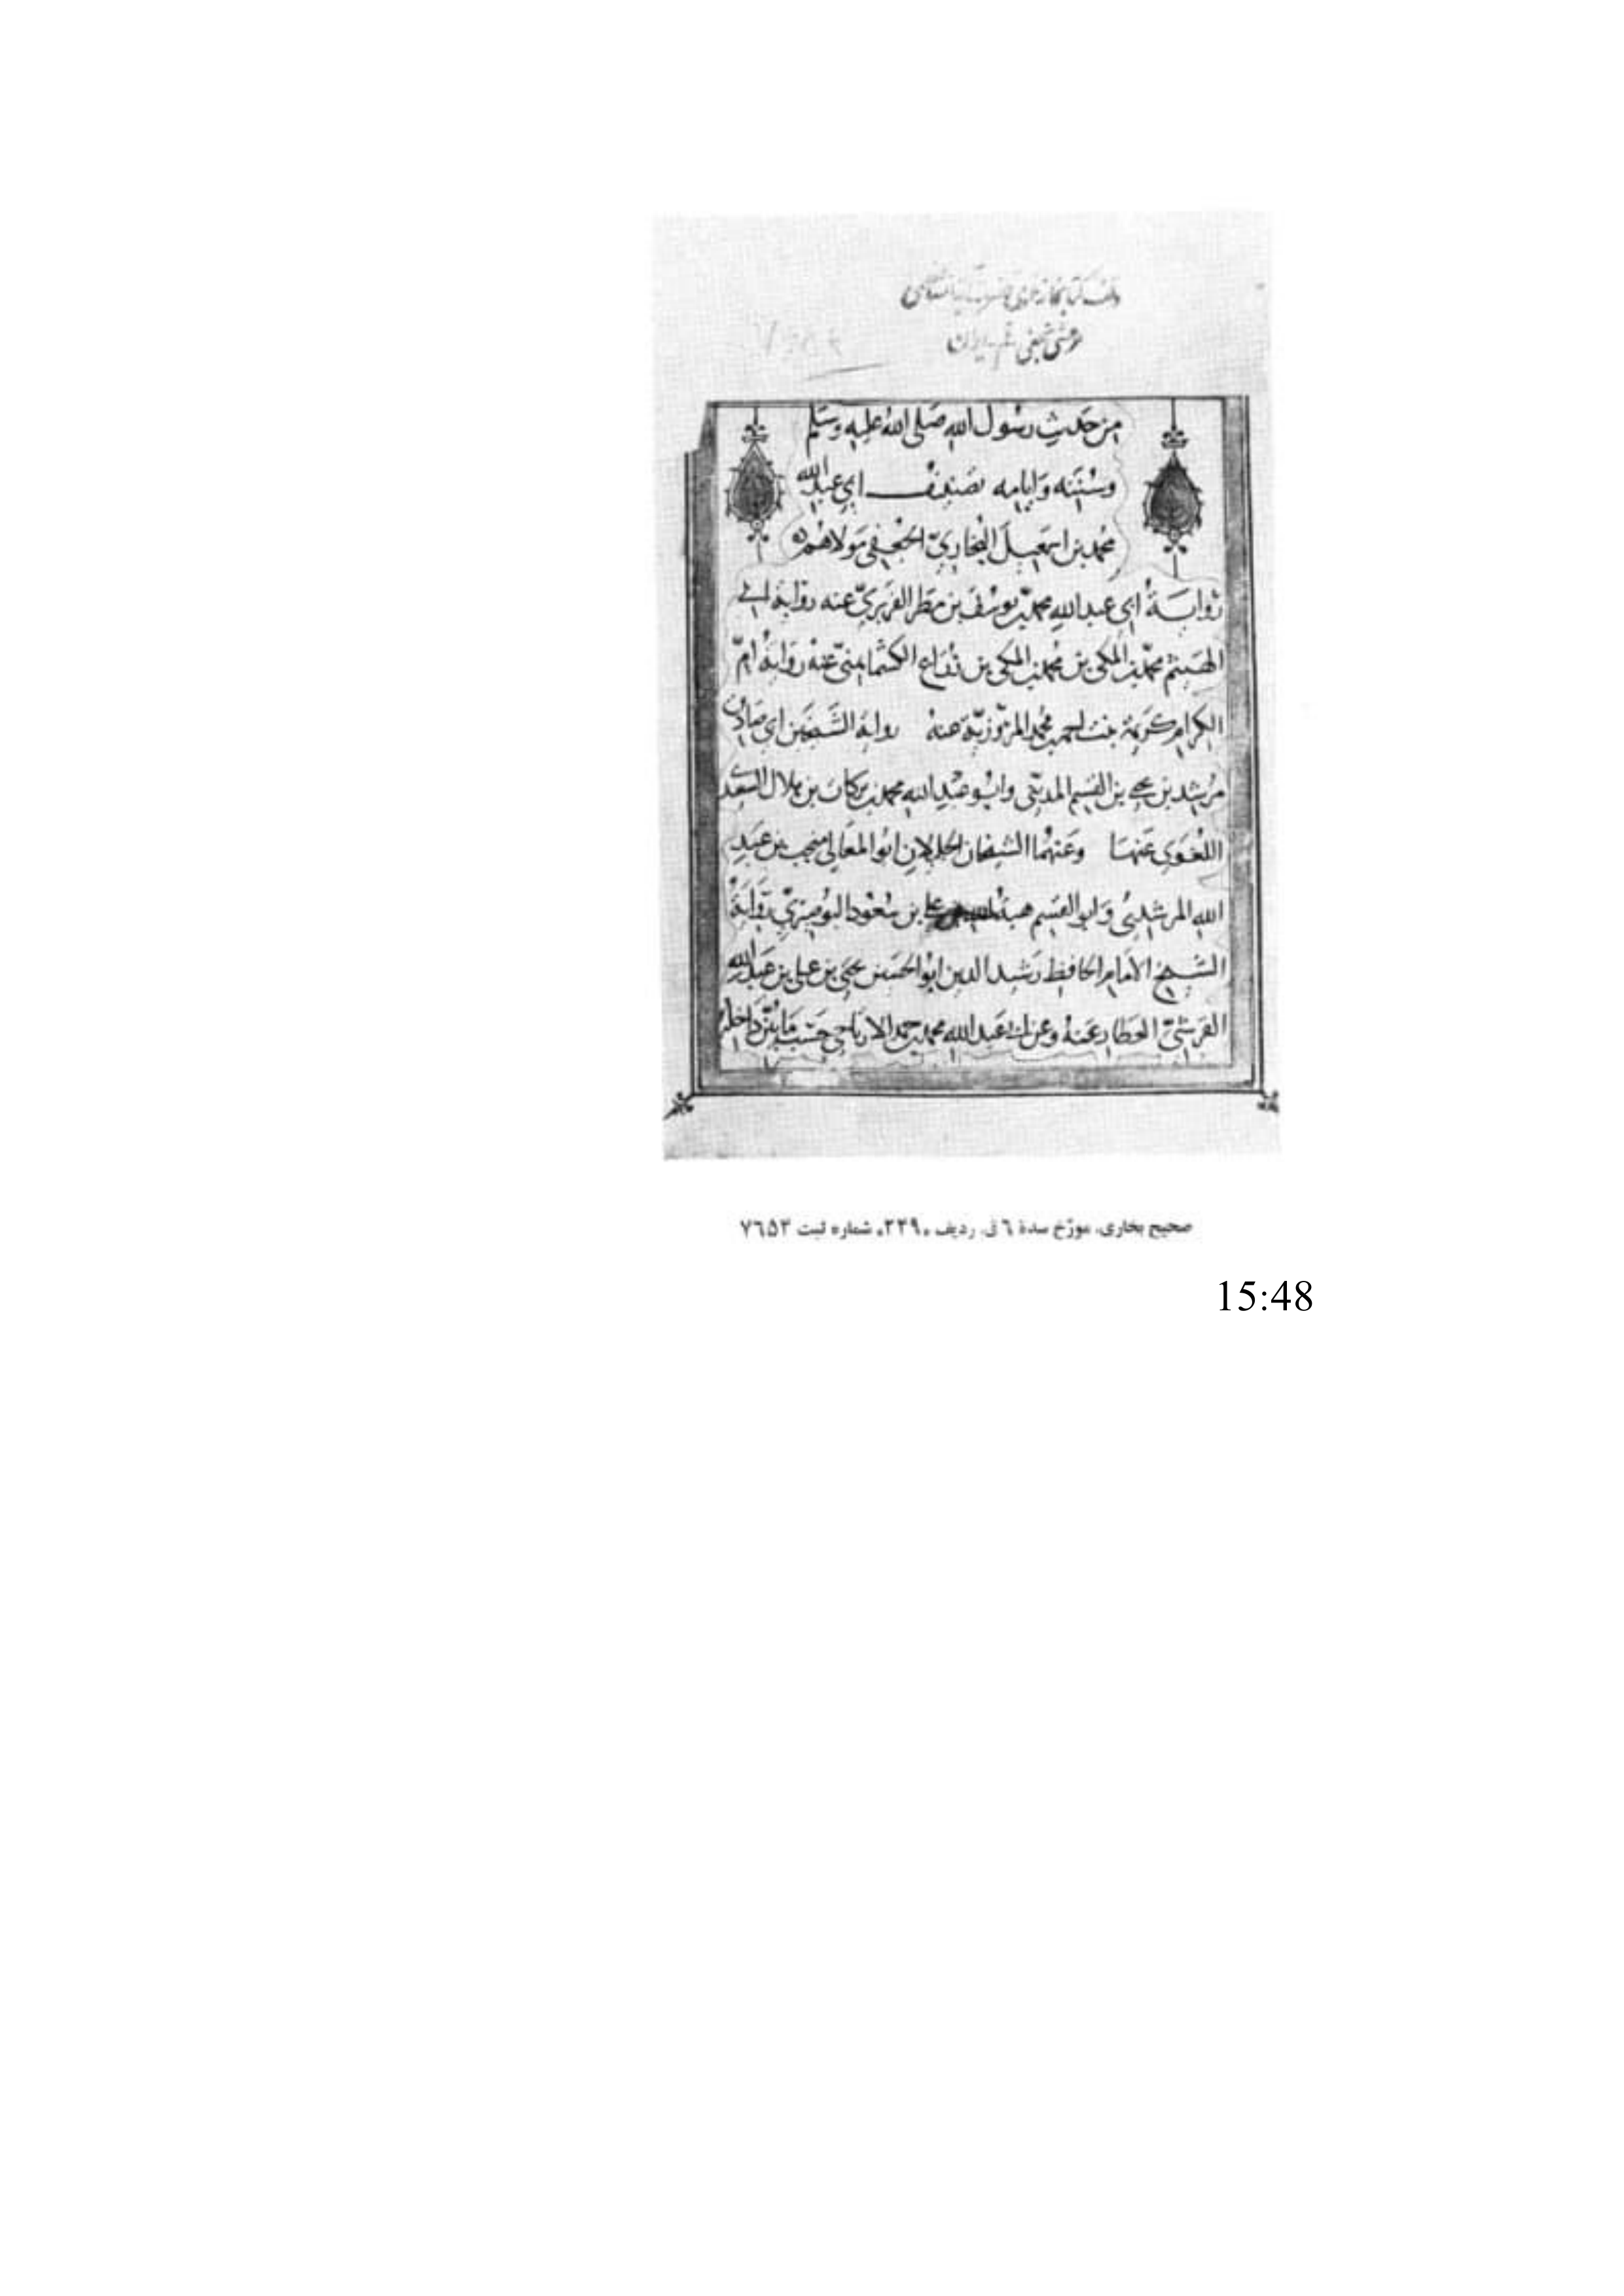 مرعشي نجفي قم - ايران
من حديث رسول الله صلى الله عليه وسلم
وسننه وايامه تصنيف ابي عبد الله
محمد بن اسمعيل البخاري الجعفي مولاهم
رواية ابي عبد الله محمد بن يوسف بن مطر الفربري عنه رواية ابي
الهيثم محمد بن المكي بن محمد بن المكي بن زراع الكشماهني عنه رواية ام
الكرام كريمة بنت احمد بن محمد المروزية عنه رواية الشيخين ابي صادق
مرشد بن يحيى بن القسم المديني وابو عبد الله محمد بن بركات بن هلال السعيدي
اللغوي عنها وعنهما الشيخان الجليلان ابو المعالي منجب بن عبد
الله المرشدي وابو القسم هبة الله بن علي بن مسعود البوصيري رواية
الشيخ الامام الحافظ رشيد الدين ابو الحسين يحيى بن علي بن عبد الله
القرشي العطار عنه وعن ابي عبد الله محمد بن حمد الارتاحي حسب ما بين داخله
صحیح بخاری، مورّخ سدهٔ ٦ ق. ردیف ٢٢٩٠، شماره ثبت ٧٦٥٣
15:48